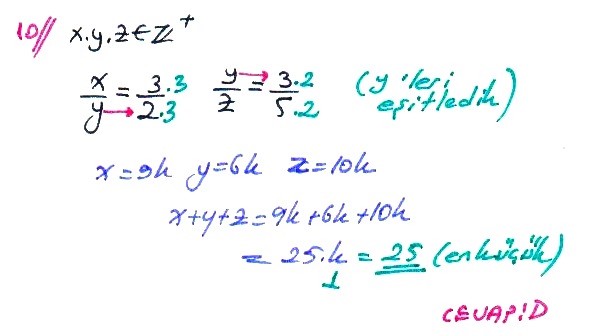 10// x.y.z∈Z⁺
x/y = 3.3/2.3   y/z = 3.2/5.2   (y'leri eşitledik)
x=9k   y=6k   z=10k
x+y+z=9k+6k+10k
= 25.k = 25 (en küçük)
1
CEVAP:D